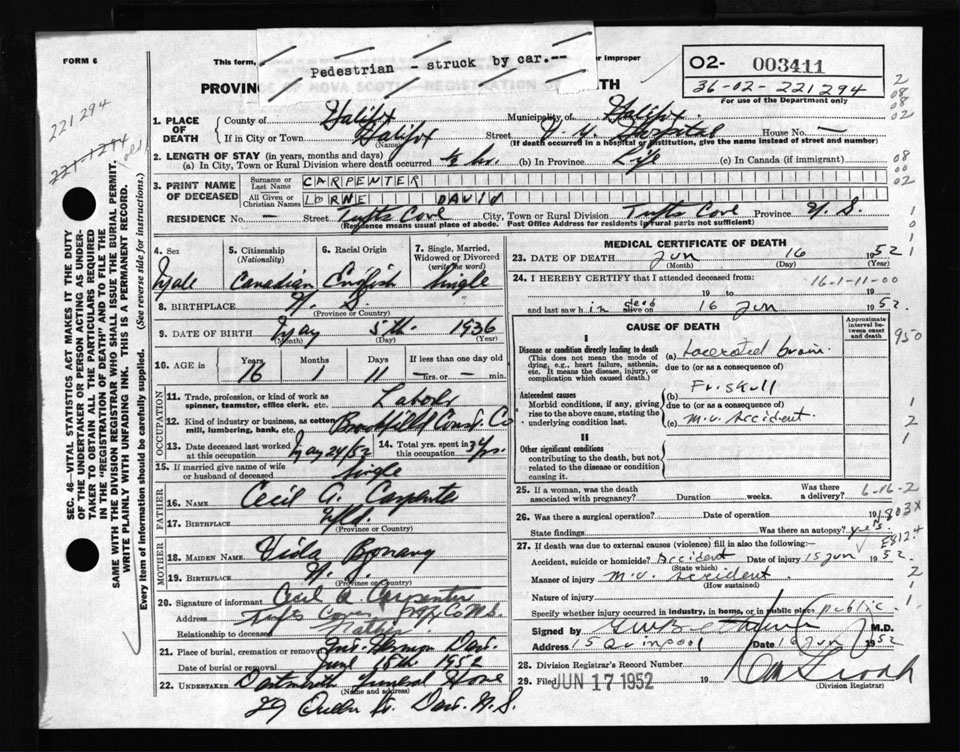 FORM 6
This form,
or improper
Pedestrian - struck by car.--
PROVINCE OF NOVA SCOTIA - REGISTRATION OF DEATH
O2- 003411
36-02-221294
For use of the Department only
221294
221294
old
2
08
08
02
08
00
02
1. PLACE OF DEATH
County of Halifax
Municipality of Halifax
If in City or Town Halifax
(Name)
Street V. G. Hospital House No. —
(If death occurred in a hospital or institution, give the name instead of street and number)
2. LENGTH OF STAY (in years, months and days)
(a) In City, Town or Rural Division where death occurred ½ hr. (b) In Province Life (c) In Canada (if immigrant)
3. PRINT NAME OF DECEASED
Surname or Last Name CARPENTER
All Given or Christian Names LORNE DAVID
RESIDENCE No. — Street Tufts Cove City, Town or Rural Division Tufts Cove Province N.S.
(Residence means usual place of abode. Post Office Address for residents in rural parts not sufficient)
4. Sex
Male
5. Citizenship (Nationality)
Canadian
6. Racial Origin
English
7. Single, Married, Widowed or Divorced (write the word)
Single
8. BIRTHPLACE N. S.
(Province or Country)
9. DATE OF BIRTH May 5th 1936
(Month) (Day) (Year)
10. AGE in
Years Months Days If less than one day old
16 1 11 — hrs. or — min.
OCCUPATION
11. Trade, profession, or kind of work as spinner, teamster, office clerk, etc. Labour
12. Kind of industry or business, as cotton mill, lumbering, bank, etc. Brookfield Const. Co
13. Date deceased last worked at this occupation May 24/52
14. Total yrs. spent in this occupation 3/4 yrs.
15. If married give name of wife or husband of deceased Single
FATHER
16. NAME Cecil A. Carpenter
17. BIRTHPLACE N.S.
(Province or Country)
MOTHER
18. MAIDEN NAME Vida
19. BIRTHPLACE N. S.
(Province or Country)
20. Signature of informant Cecil A. Carpenter
Address Tufts Cove Hfx Co N.S.
Relationship to deceased Father
21. Place of burial, cremation or removal Dart.
Date of burial or removal June 18th 1952
22. UNDERTAKER Dartmouth Funeral Home
(Name and address)
29 Queen St. Dart. N.S.
MEDICAL CERTIFICATE OF DEATH
23. DATE OF DEATH Jun 16 1952
(Month) (Day) (Year)
24. I HEREBY CERTIFY that I attended deceased from:
16-1-11-00
19 to 19
and last saw h im dead alive on 16 Jun 1952
CAUSE OF DEATH
Approximate interval between onset and death
I
Disease or condition directly leading to death
(This does not mean the mode of dying, e.g., heart failure, asthenia, etc. It means the disease, injury, or complication which caused death.)
(a) Lacerated brain
due to (or as a consequence of)
Antecedent causes
Morbid conditions, if any, giving rise to the above cause, stating the underlying condition last.
(b) Fr. skull
due to (or as a consequence of)
(c) M.V. Accident
II
Other significant conditions
contributing to the death, but not related to the disease or condition causing it.
950
25. If a woman, was the death associated with pregnancy? Duration weeks. Was there a delivery?
6-16-2
26. Was there a surgical operation? Date of operation 19
State findings Was there an autopsy? yes
27. If death was due to external causes (violence) fill in also the following:—
Accident, suicide or homicide? Accident Date of injury 15 Jun 1952
(State which)
Manner of injury M.V. Accident
(How sustained)
Nature of injury
Specify whether injury occurred in industry, in home, or in public place public
Signed by M.D.
Address 15 Quinpool Date 16 Jun 1952
28. Division Registrar's Record Number
29. Filed JUN 17 1952 19
(Division Registrar)
SEC. 46—VITAL STATISTICS ACT MAKES IT THE DUTY OF THE UNDERTAKER OR PERSON ACTING AS UNDERTAKER TO OBTAIN ALL THE PARTICULARS REQUIRED IN THE "REGISTRATION OF DEATH" AND TO FILE THE SAME WITH THE DIVISION REGISTRAR WHO SHALL ISSUE THE BURIAL PERMIT.
WRITE PLAINLY WITH UNFADING INK. THIS IS A PERMANENT RECORD.
Every item of information should be carefully supplied. (See reverse side for instructions.)